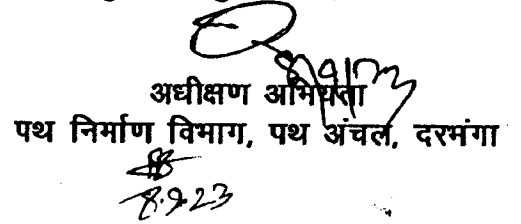 अधीक्षण अभियंता
पथ निर्माण विभाग, पथ अंचल, दरभंगा
8.9.23